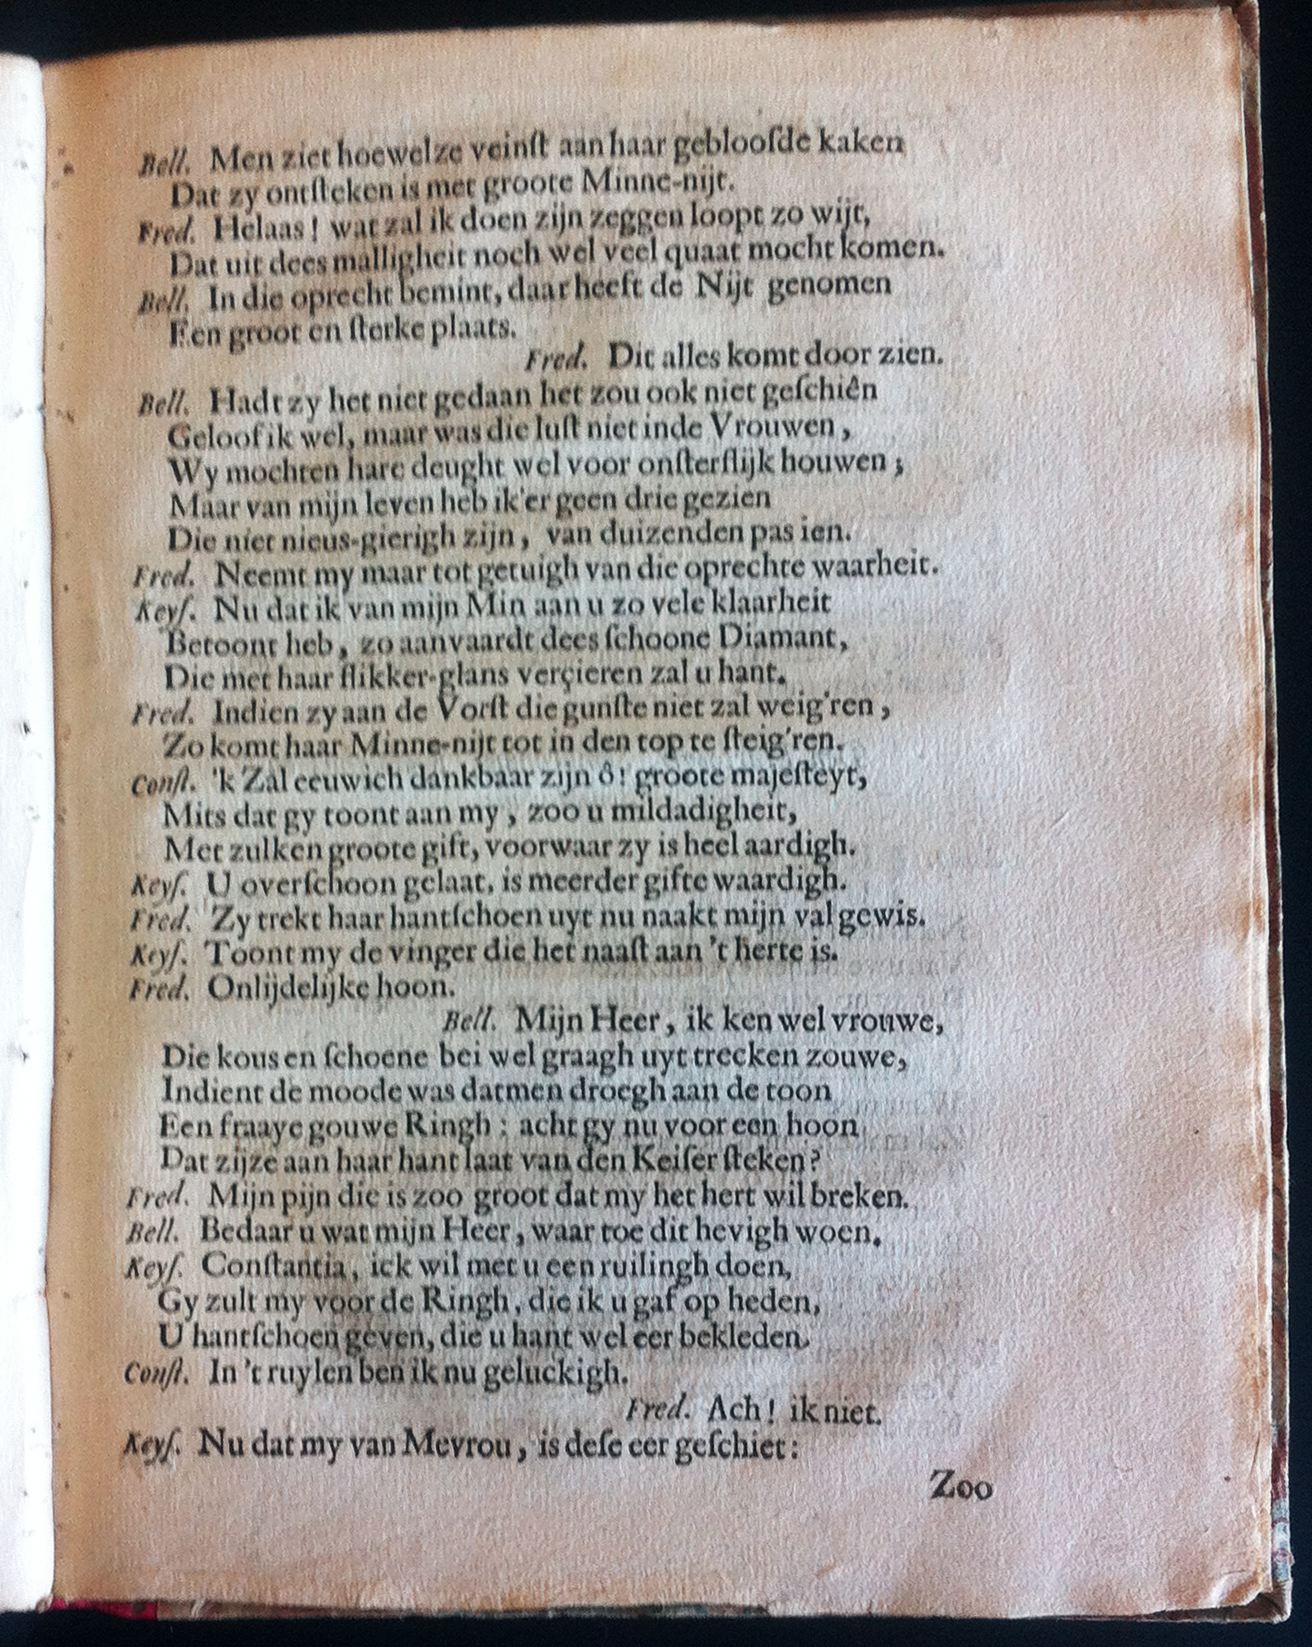 Bell. Men ziet hoewelze veinſt aan haar geblooſde kaken
Dat zy ontſteken is met groote Minne-nijt.
Fred. Helaas! wat zal ik doen zijn zeggen loopt zo wijt,
Dat uit dees malligheit noch wel veel quaat mocht komen.
Bell. In die oprecht bemint, daar heeft de Nijt genomen
Een groot en ſterke plaats.
Fred. Dit alles komt door zien.
Bell. Hadt zy het niet gedaan het zou ook niet geſchiên
Geloof ik wel, maar was die luſt niet inde Vrouwen,
Wy mochten hare deught wel voor onſterflijk houwen;
Maar van mijn leven heb ik'er geen drie gezien
Die niet nieus-gierigh zijn, van duizenden pas ien.
Fred. Neemt my maar tot getuigh van die oprechte waarheit.
Keyſ. Nu dat ik van mijn Min aan u zo vele klaarheit
Betoont heb, zo aanvaardt dees ſchoone Diamant,
Die met haar flikker-glans verçieren zal u hant.
Fred. Indien zy aan de Vorſt die gunſte niet zal weig'ren,
Zo komt haar Minne-nijt tot in den top te ſteig'ren.
Conſt. 'k Zal eeuwich dankbaar zijn ô! groote majeſteyt,
Mits dat gy toont aan my, zoo u mildadigheit,
Met zulken groote gift, voorwaar zy is heel aardigh.
Keyſ. U overſchoon gelaat, is meerder gifte waardigh.
Fred. Zy trekt haar hantſchoen uyt nu naakt mijn val gewis.
Keyſ. Toont my de vinger die het naaſt aan 't herte is.
Fred. Onlijdelijke hoon.
Bell. Mijn Heer, ik ken wel vrouwe,
Die kous en ſchoene bei wel graagh uyt trecken zouwe,
Indient de moode was datmen droegh aan de toon
Een fraaye gouwe Ringh: acht gy nu voor een hoon
Dat zijze aan haar hant laat van den Keiſer ſteken?
Fred. Mijn pijn die is zoo groot dat my het hert wil breken.
Bell. Bedaar u wat mijn Heer, waar toe dit hevigh woen.
Keyſ. Conſtantia, ick wil met u een ruilingh doen,
Gy zult my voor de Ringh, die ik u gaf op heden,
U hantſchoen geven, die u hant wel eer bekleden.
Conſt. In 't ruylen ben ik nu geluckigh.
Fred. Ach! ik niet.
Keyſ. Nu dat my van Mevrou, is deſe eer geſchiet:
Zoo